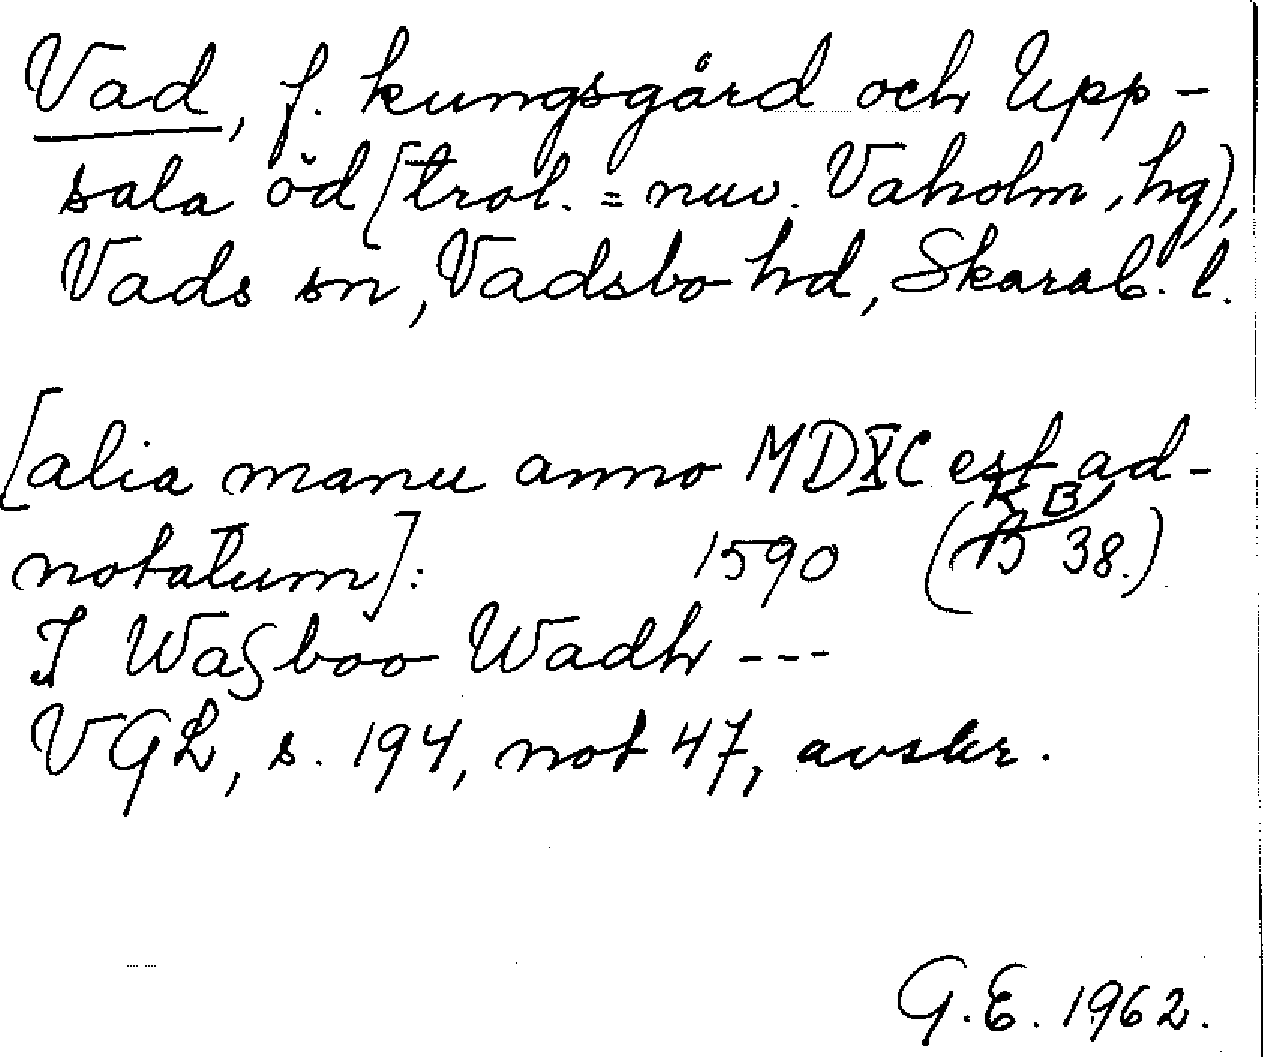 Vad, f. kungsgård och Upp-
sala öd [trol. = nuv. Vaholm, hg),
Vads sn, Vadsbo hd, Skarab. l.
[alia manu anno MDXC est ad-
notatum]: 1590 (KB B 38.)
I Waßboo Wadh ---
VGL, s. 194, not 47, avskr.
G.E. 1962.